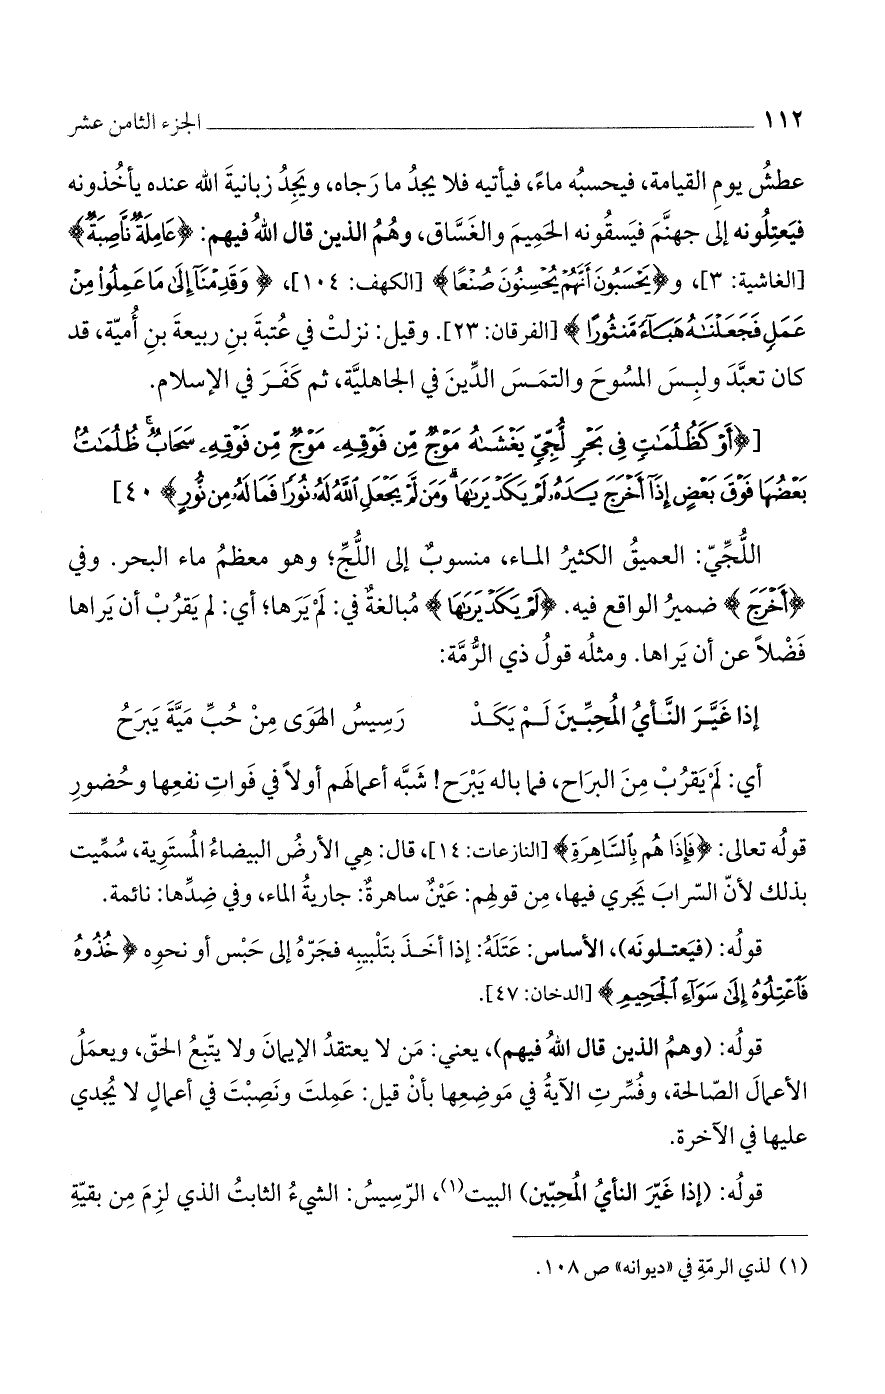 ١١٢ الجزء الثامن عشر
عطشُ يومِ القيامة، فيحسبُه ماءً، فيأتيه فلا يجدُ ما رَجاه، ويَجِدُ زبانيةَ الله عنده يأخُذونه
فيَعتِلُونه إلى جهنَّمَ فيَسقُونه الحَمِيمَ والغَسَّاق، وهُمُ الذين قال اللهُ فيهم: ﴿عَامِلَةٌ نَّاصِبَةٌ﴾
[الغاشية: ٣]، و﴿يَحْسَبُونَ أَنَّهُمْ يُحْسِنُونَ صُنْعًا﴾ [الكهف: ١٠٤]، ﴿وَقَدِمْنَآ إِلَىٰ مَا عَمِلُوا۟ مِنْ
عَمَلٍ فَجَعَلْنَـٰهُ هَبَآءً مَّنثُورًا﴾ [الفرقان: ٢٣]. وقيل: نزلتْ في عُتبةَ بنِ ربيعةَ بنِ أُميّة، قد
كان تعبَّدَ ولبِسَ المسُوحَ والتمَسَ الدِّينَ في الجاهليَّة، ثم كَفَرَ في الإسلام.
[﴿أَوْ كَظُلُمَـٰتٍ فِى بَحْرٍ لُّجِّىٍّ يَغْشَىٰهُ مَوْجٌ مِّن فَوْقِهِۦ مَوْجٌ مِّن فَوْقِهِۦ سَحَابٌ ۚ ظُلُمَـٰتٌۢ
بَعْضُهَا فَوْقَ بَعْضٍ إِذَآ أَخْرَجَ يَدَهُۥ لَمْ يَكَدْ يَرَىٰهَا ۗ وَمَن لَّمْ يَجْعَلِ ٱللَّهُ لَهُۥ نُورًا فَمَا لَهُۥ مِن نُّورٍ﴾ ٤٠]
اللُّجِّيّ: العميقُ الكثيرُ الماء، منسوبٌ إلى اللُّجِّ؛ وهو معظمُ ماء البحر. وفي
﴿أَخْرَجَ﴾ ضميرُ الواقع فيه. ﴿لَمْ يَكَدْ يَرَىٰهَا﴾ مُبالغةٌ في: لَمْ يَرَها؛ أي: لم يَقرُبْ أن يَراها
فَضْلاً عن أن يَراها. ومثلُه قولُ ذي الرُّمَّة:
إذا غَيَّرَ النَّأيُ المُحِبِّينَ لَمْ يَكَدْ رَسِيسُ الهَوَى مِنْ حُبِّ مَيَّةَ يَبرَحُ
أي: لَمْ يَقرُبْ مِنَ البرَاح، فما باله يَبْرَح! شَبَّه أعمالَهم أولاً في فَواتِ نفعِها وحُضورِ
قولُه تعالى: ﴿فَإِذَا هُم بِٱلسَّاهِرَةِ﴾ [النازعات: ١٤]، قال: هِي الأرضُ البيضاءُ المُستَوِية، سُمِّيت
بذلك لأنّ السّرابَ يَجري فيها، مِن قولهِم: عَيْنٌ ساهرةٌ: جاريةُ الماء، وفي ضِدِّها: نائمة.
قولُه: (فيَعتلونَه)، الأساس: عَتَلَهُ: إذا أخَذَ بتَلْبيبِه فجَرّهُ إلى حَبْس أو نحوِه ﴿خُذُوهُ
فَٱعْتِلُوهُ إِلَىٰ سَوَآءِ ٱلْجَحِيمِ﴾ [الدخان: ٤٧].
قولُه: (وهمُ الذين قال اللهُ فيهم)، يعني: مَن لا يعتقدُ الإيمانَ ولا يتّبِعُ الحقّ، ويعمَلُ
الأعمالَ الصّالحة، وفُسِّرتِ الآيةُ في مَوضِعِها بأنْ قيل: عَمِلتَ ونَصِبْتَ في أعمالٍ لا يُجدي
عليها في الآخرة.
قولُه: (إذا غَيّرَ النأيُ المُحبّين) البيت(١)، الرّسِيسُ: الشيءُ الثابتُ الذي لزِمَ مِن بقيّةِ
(١) لذي الرمّةِ في «ديوانه» ص ١٠٨.